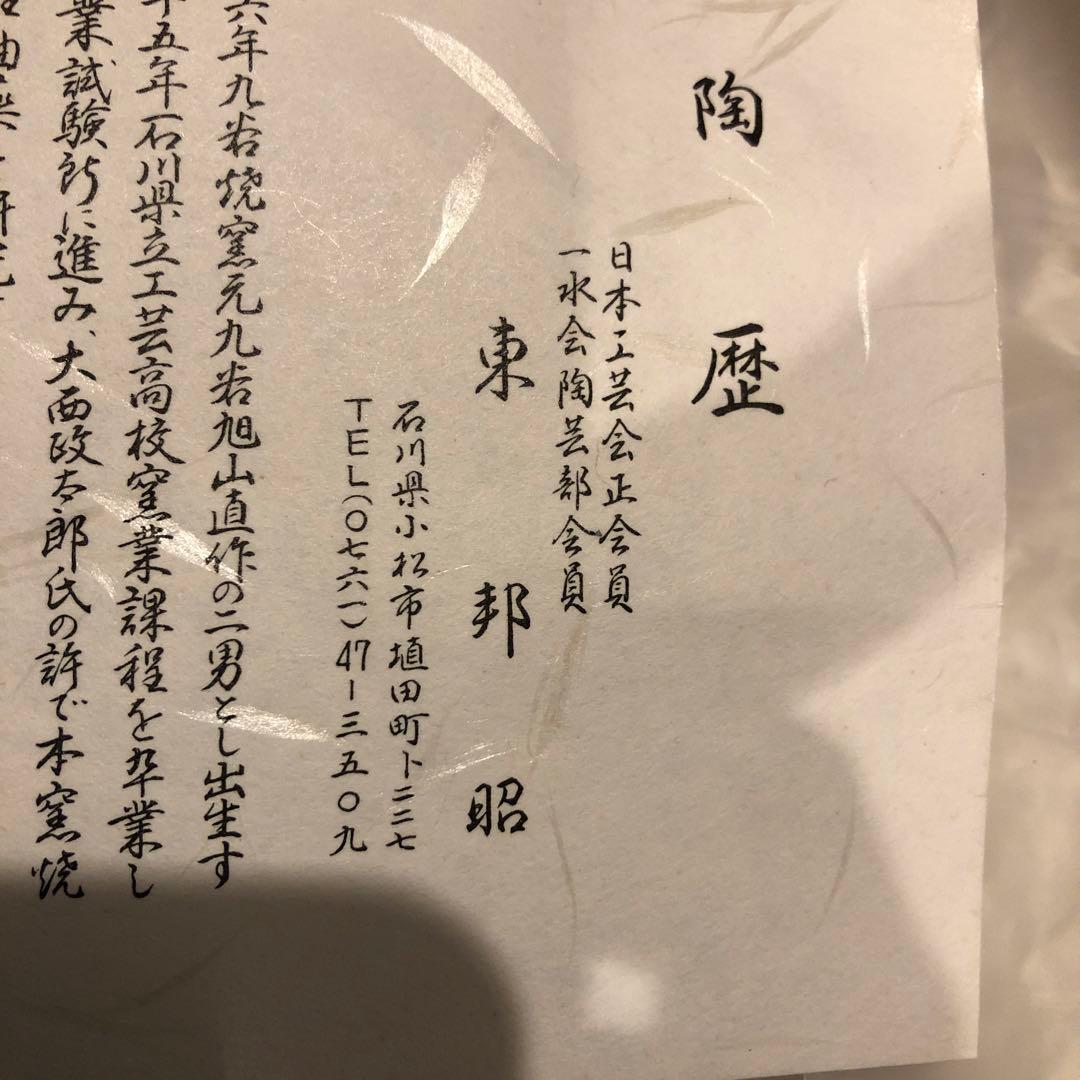 陶歴
日本工芸会正会員
一水会陶芸部会員
東邦昭
石川県小松市埴田町ト二二七
TEL(〇七六一)47-三五〇九
六年九谷焼窯元九谷旭山直作の二男とし出生す
十五年石川県立工芸高校窯業課程を卒業し
業試験所に進み、大西政太郎氏の許で本窯焼